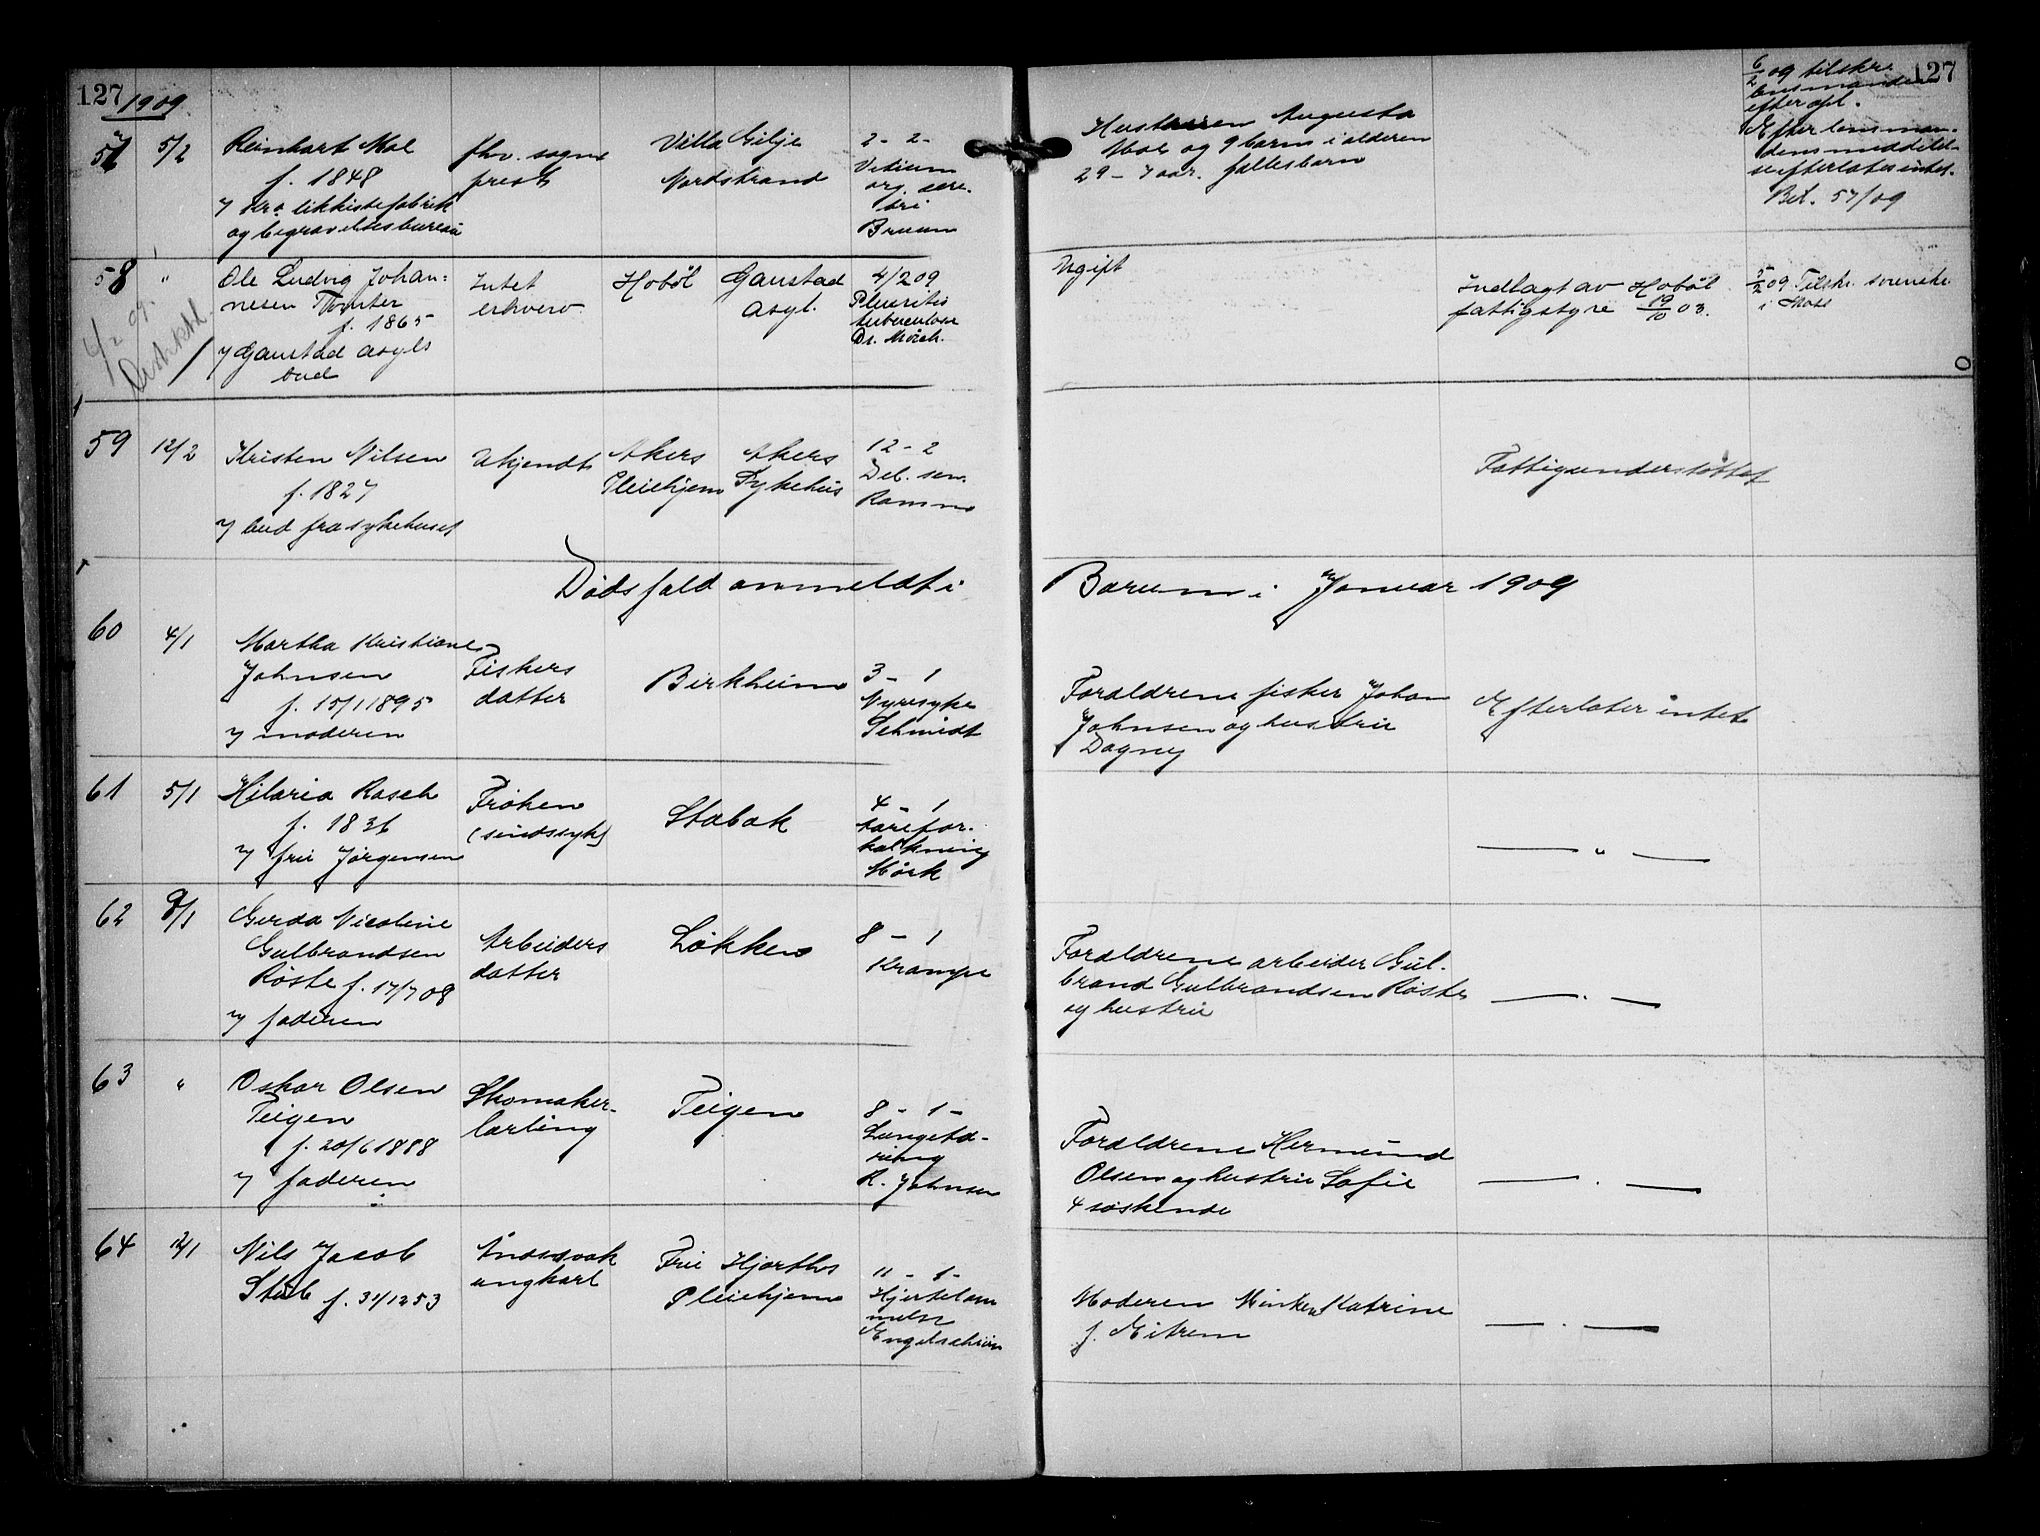 127
1909
57
5/2
Reinhart Moe
f. 1848
v/ Kra likkistefabrik
og begravelsesbureau
fhv. sogne
prest
Villa Gilje
Nordstrand
2 - 2 -
Vitium
org.
Bruun
Hustruen Augusta
Moe og 9 barn i alderen
29 - 7 aar. fællesbarn
6/2 09 tilskr.
lensmanden
efter opl.
Efter lensman-
dens meddelel-
se efterlates intet.
Bet. 57/09
127
58
"
4/2 09.
Ole Ludvig Johan=
nesen Tomter
f. 1865
v/ Gaustad asyls
bud
Intet
erhverv
Hobøl
Gaustad
asyl.
4/2 09
Pleuritis
tuberculosa
Dr. Mørch.
Ugift
Indlagt av Hobøl
fattigstyre 19/10 03.
5/2 09. Tilskr. svenske
i Moss
59
12/2
Kristen Nilsen
f. 1827
v/ bud fra sykehuset
Ukjendt
Akers
Pleiehjem
Akers
Sykehus
12 - 2
Deb. sen.
Ramm
Fattigunderstøttet
Dødsfald anmeldt i
Bærum i Januar 1909
60
4/1
Martha Kristiane
Johnsen
f. 15/1 1895
v/ moderen
Fiskers
datter
Birkheim
3 - 1
Nyresyke
Schmidt
Forældrene fisker Johan
Johnsen og hustru
Dagny
Efterlater intet
61
5/1
Hilaria Rasch
f. 1836
v/ fru Jørgensen
Frøken
(sindssyk)
Stabæk
4 - 1
Aarefor-
kalkning
Mørk
— " —
62
9/1
Gerda Nicoline
Gulbrandsen
Røste f. 17/7 08
v/ faderen
Arbeiders
datter
Løkken
8 - 1
Krampe
Forældrene arbeider Gul-
brand Gulbrandsen Røste
og hustru
— . —
63
"
Oskar Olsen
Teigen
f. 20/6 1888
v/ faderen
Skomaker-
lærling
Teigen
8 - 1 -
Lungetæ-
ring
R. Johnsen
Forældrene Hermund
Olsen og hustru Sofie
4 søskende
— . —
64
12/1
Nils Jacob
Stub f. 31/12 53
Åndssvak
ungkarl
Fru Hjorths
Pleiehjem
11 - 1 -
Hjertelam
melse
Engelschiøn
Moderen Katrine
f. Eitrem
— . —